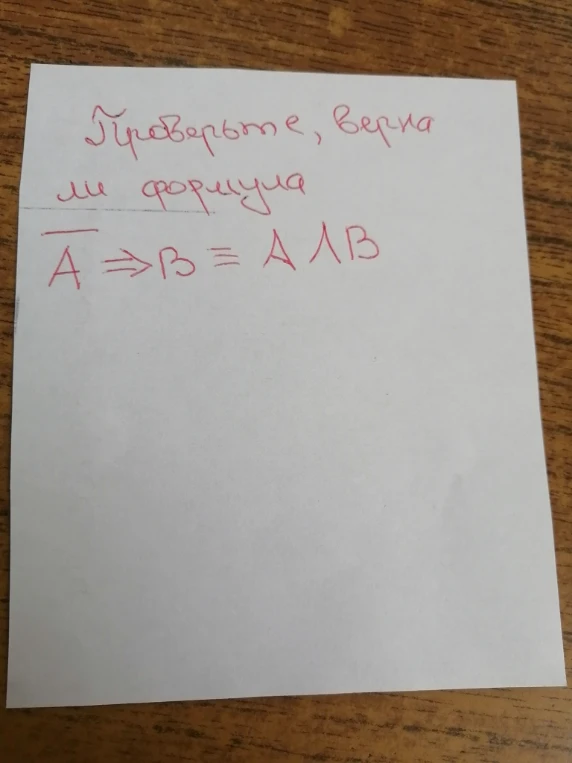 Проверьте, верна
ли формула
A̅ ⇒ B ≡ A ∧ B